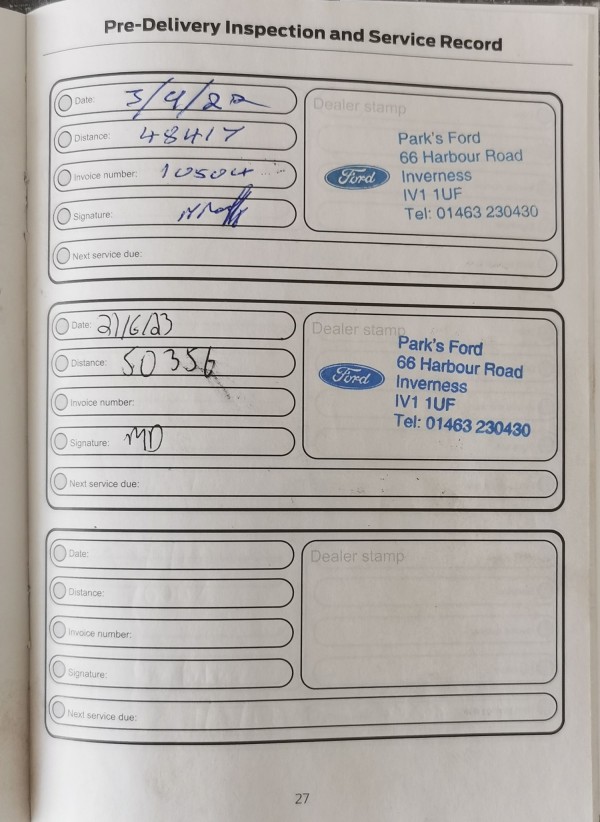 Pre-Delivery Inspection and Service Record
Date: 3/9/22
Distance: 48417
Invoice number: 10504
Signature:
Next service due:
Dealer stamp
Park's Ford
66 Harbour Road
Ford Inverness
IV1 1UF
Tel: 01463 230430
Date: 21/6/23
Distance: 50356
Invoice number:
Signature: MD
Next service due:
Dealer stamp
Park's Ford
66 Harbour Road
Ford Inverness
IV1 1UF
Tel: 01463 230430
Date:
Distance:
Invoice number:
Signature:
Next service due:
Dealer stamp
27